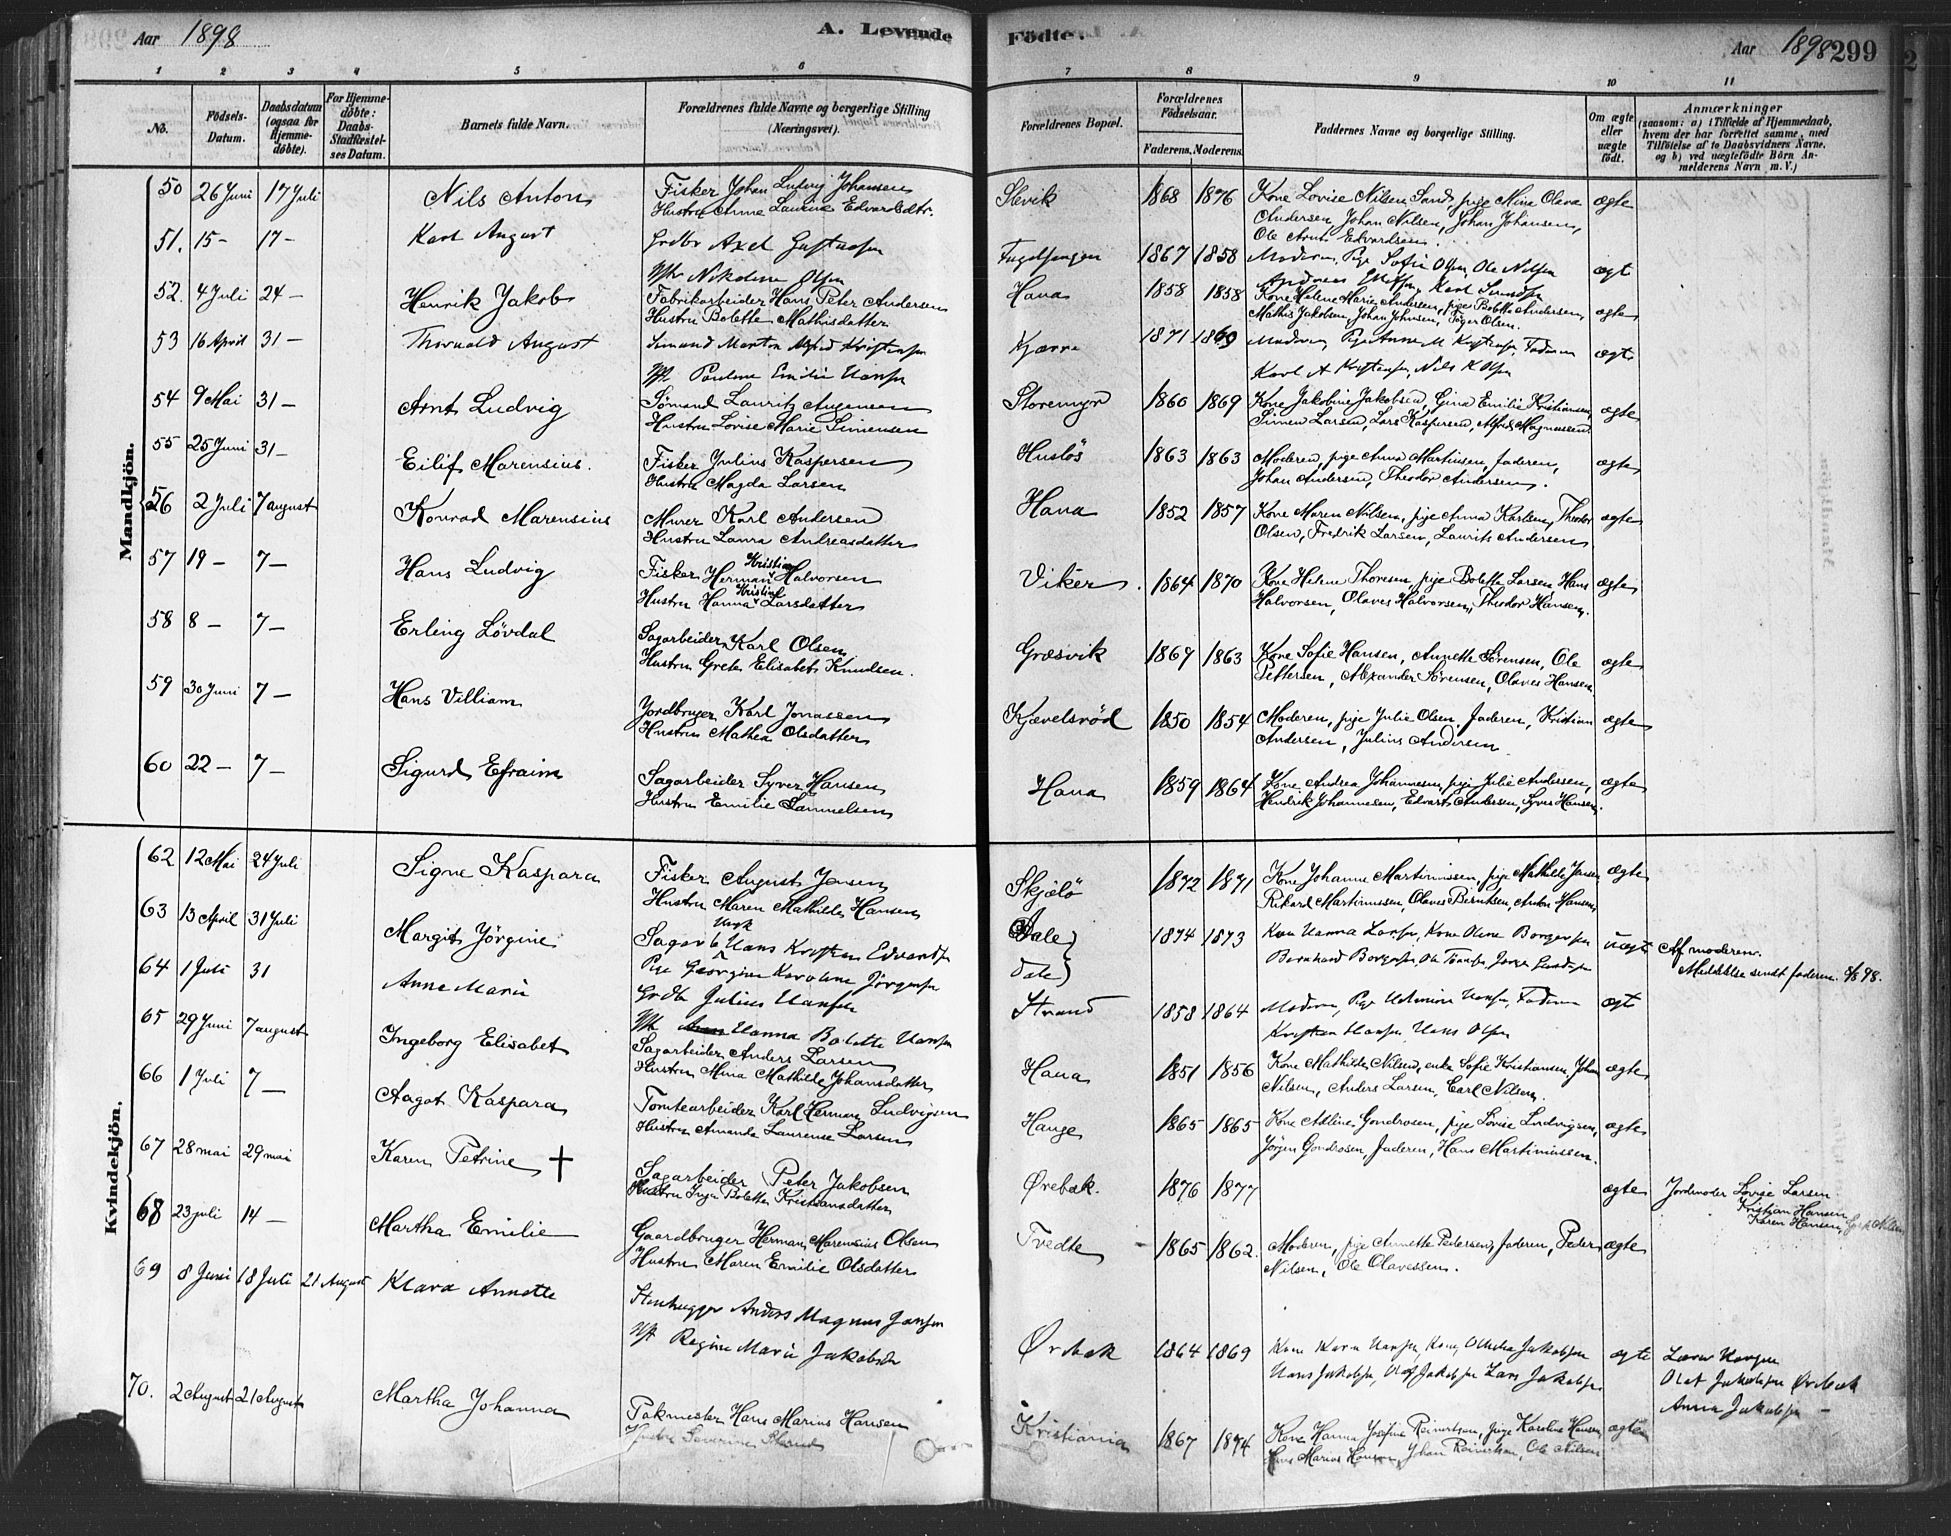 Aar 1898
A. Levende
Födte.
Aar 1898
299
1 2 3 4 5 6 7 8 9 10 11
No.
Födsels-
Datum.
Daabsdatum
(ogsaa for
Hjemme-
döbte).
For Hjemme-
döbte:
Daabs-
Stadfæstel-
ses Datum.
Barnets fulde Navn.
Forældrenes fulde Navne og borgerlige Stilling
(Næringsvei).
Forældrenes Bopæl.
Forældrenes
Födselsaar.
Faderens. Moderens.
Faddernes Navne og borgerlige Stilling.
Om ægte
eller
uægte
födt.
Anmærkninger
(saasom: a) i Tilfælde af Hjemmedaab,
hvem der har forrettet samme, med
Tilföielse af to Daabsvidners Navne,
og b) ved uægtefödte Börn An-
melderens Navn m. V.)
Mandkjön.
50 26 Juni 17 Juli Nils Anton Fisker Johan Ludvig Johansen
Hustru Anne Laurine Edvardsdtr.
Slevik 1868 1876 Kone Lovise Nilsen Sand, pige Mina Olava
Andersen, Johan Nilsen, Johan Johansen,
Ole Arnt Edvardsen. ægte
51. 15 - 17 - Karl August Grdbr Axel Gustavsen
Hst Nikoline Olsen
1867 1858 Moderen, Pige Sofie Olsen, Ole Nilsen
ægt
52. 4 Juli 24 - Henrik Jakob Fabrikarbeider Hans Peter Andersen
Hustru Bolette Mathisdatter
Hana 1858 1858 Kone Helene Marie Andersen, pige Bolette Andersen,
Mathis Jakobsen, Johan Johnsen, Töger Olsen. ægte
53 16 April 31 - Thorvald August Sömand Martin Alfred Kristensen
Hst Pauline Emilie Hansen
Kjærre 1871 1869 Moderen, Pige Anne M Kristensen, Faderen
Karl A Kristensen, Nils K Olsen ægte
54 9 Mai 31 - Arnt Ludvig Sömand Lauritz Augensen
Hustru Lovise Marie Simensen
Storemyr 1860 1869 Kone Jakobine Jakobsen, Gina Emilie Kristiansen,
Simen Larsen, Lars Kaspersen, Alfred Magnussen ægte
55 25 Juni 31 - Eilif Marensius. Fisker Julius Kaspersen
Hustru Magda Larsen
Huslös 1863 1863 Moderen, pige Anna Martinsen, faderen,
Johan Andersen, Theodor Andersen. ægte
56 2 Juli 7 august Konrad Marensius Murer Karl Andersen
Hustru Laura Andreasdatter
Hana 1852 1857 Kone Maren Nilsen, pige Anna Karlsen, Theodor
Olsen, Fredrik Larsen, Laurits Andersen ægte
57 19 - 7 - Hans Ludvig Fisker Herman Kristian Halvorsen
Hustru Hanna Kristine Larsdatter
Viker. 1864 1870 Kone Helene Thoresen, pige Bolette Larsen Hans
Halvorsen, Olaves Halvorsen, Theodor Hansen. ægte
58 8 - 7 - Erling Lövdal Sagarbeider Karl Olsen
Hustru Grete Elisabet Knudsen.
Græsvik 1867 1863 Kone Sofie Hansen, Annette Sörensen, Ole
Pettersen, Alexander Sörensen, Olaves Hansen ægte
59 30 Juni 7 - Hans Villiam Jordbruger Karl Jonassen
Hustru Mathea Olsdatter
Kjævelsröd 1850 1854 Moderen, pige Julie Olsen, faderen, Kristian
Andersen, Julius Andersen ægte
60 22 - 7 - Sigurd Efraim Sagarbeider Syver Hansen
Hustru Emilie Samuelsen
Hana 1859 1864 Kone Andrea Johannesen, pige Julie Andersen,
Hendrik Johannesen, Edvart Andersen, Syver Hansen. ægte
Kvindekjön.
62 12 Mai 24 Juli Signe Kaspara Fisker August Jensen
Hustru Maren Mathilde Hansen
Skjælö 1872 1871 Kone Johanne Martinussen, pige Mathilde Jansen
Rikard Martinussen, Olaves Berntsen, Anton Hansen, ægte
63 13 April 31 Juli Margit Jörgine Sagarb Ungk Hans Kristian Edvardsen
Pige Georgine Karoline Jörgensen
Dale
Dale 1874 1873 Kone Hanna Larsen, Kone Oline Borgersen
Bernhard Borgersen, uægte Af moderen.
Meddelelse sendt faderen. 8/8 98.
64 1 Juli 31 Anne Marie Grdbr Julius Hansen
Hst Hanna Bolette Hansen
Strand 1858 1864 Moderen, Pige Hansen, Faderen
Kristian Hansen, Hans Olsen ægte
65 29 Juni 7 august Ingeborg Elisabet Sagarbeider Anders Larsen
Hustru Mina Mathilde Johansdatter
Hana 1851 1856 Kone Mathilde Nilsen, enke Sofie Kristiansen, Johan
Nilsen, Anders Larsen, Carl Nilsen. ægte
66 1 Juli 7 - Aagot Kaspara Tomtearbeider Karl Herman Ludvigsen
Hustru Amanda Laurense Larsen
Hauge 1865 1865 Kone Adline Gundrosen, pige Lovise Ludvigsen,
Jörgen Gundrosen, faderen, Hans Martiniussen. ægte
67 28 mai 29 mai Karen Petrine † Sagarbeider Peter Jakobsen
Hustru Inga Bolette Kristiansdatter
Ørebæk. 1876 1877 ægte Jordemoder Lovise Larsen
Kristian Hansen
Karen Hansen,
68 23 juli 14 - Martha Emilie Gaardbruger Herman Marensius Olsen
Hustru Maren Emilie Olsdatter
Tvedte 1865 1862. Moderen, pige Annette Pedersen, faderen, Peder
Nilsen, Ole Olavessen. ægte
69 8 Juni 18 Juli 21 August Klara Annette Stenhugger Anders Magnus Jansen
Hst Regine Marie Jakobsen
Ørebæk 1864 1869 Kone Karen Hansen, Kone Jakobsen
Hans Jakobsen, Olaf Jakobsen Lars Jakobsen ægte
Olaf Jakobsen Ørebæk
Anna Jakobsen -
70. 2 August 21 August Martha Johanna Pakmester Hans Marius Hansen
Hustru Severine
Kristiania 1867 1874 Kone Hanna Josefine Reinertsen, pige Karoline Hansen,
Hans Marius Hansen, Johan Reinertsen, Ole Nilsen ægte